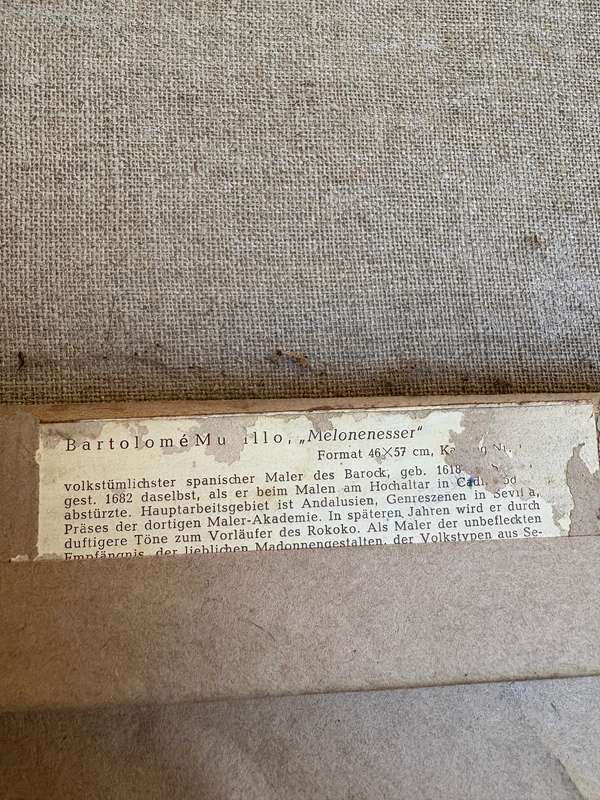 Bartolomé Mu illo, „Melonenesser“
Format 46×57 cm,
volkstümlichster spanischer Maler des Barock, geb. 1618
gest. 1682 daselbst, als er beim Malen am Hochaltar in
abstürzte. Hauptarbeitsgebiet ist Andalusien, Genreszenen in
Präses der dortigen Maler-Akademie. In späteren Jahren wird er durch
duftigere Töne zum Vorläufer des Rokoko. Als Maler der unbefleckten
Empfängnis, der lieblichen Madonnengestalten, der Volkstypen aus Se-